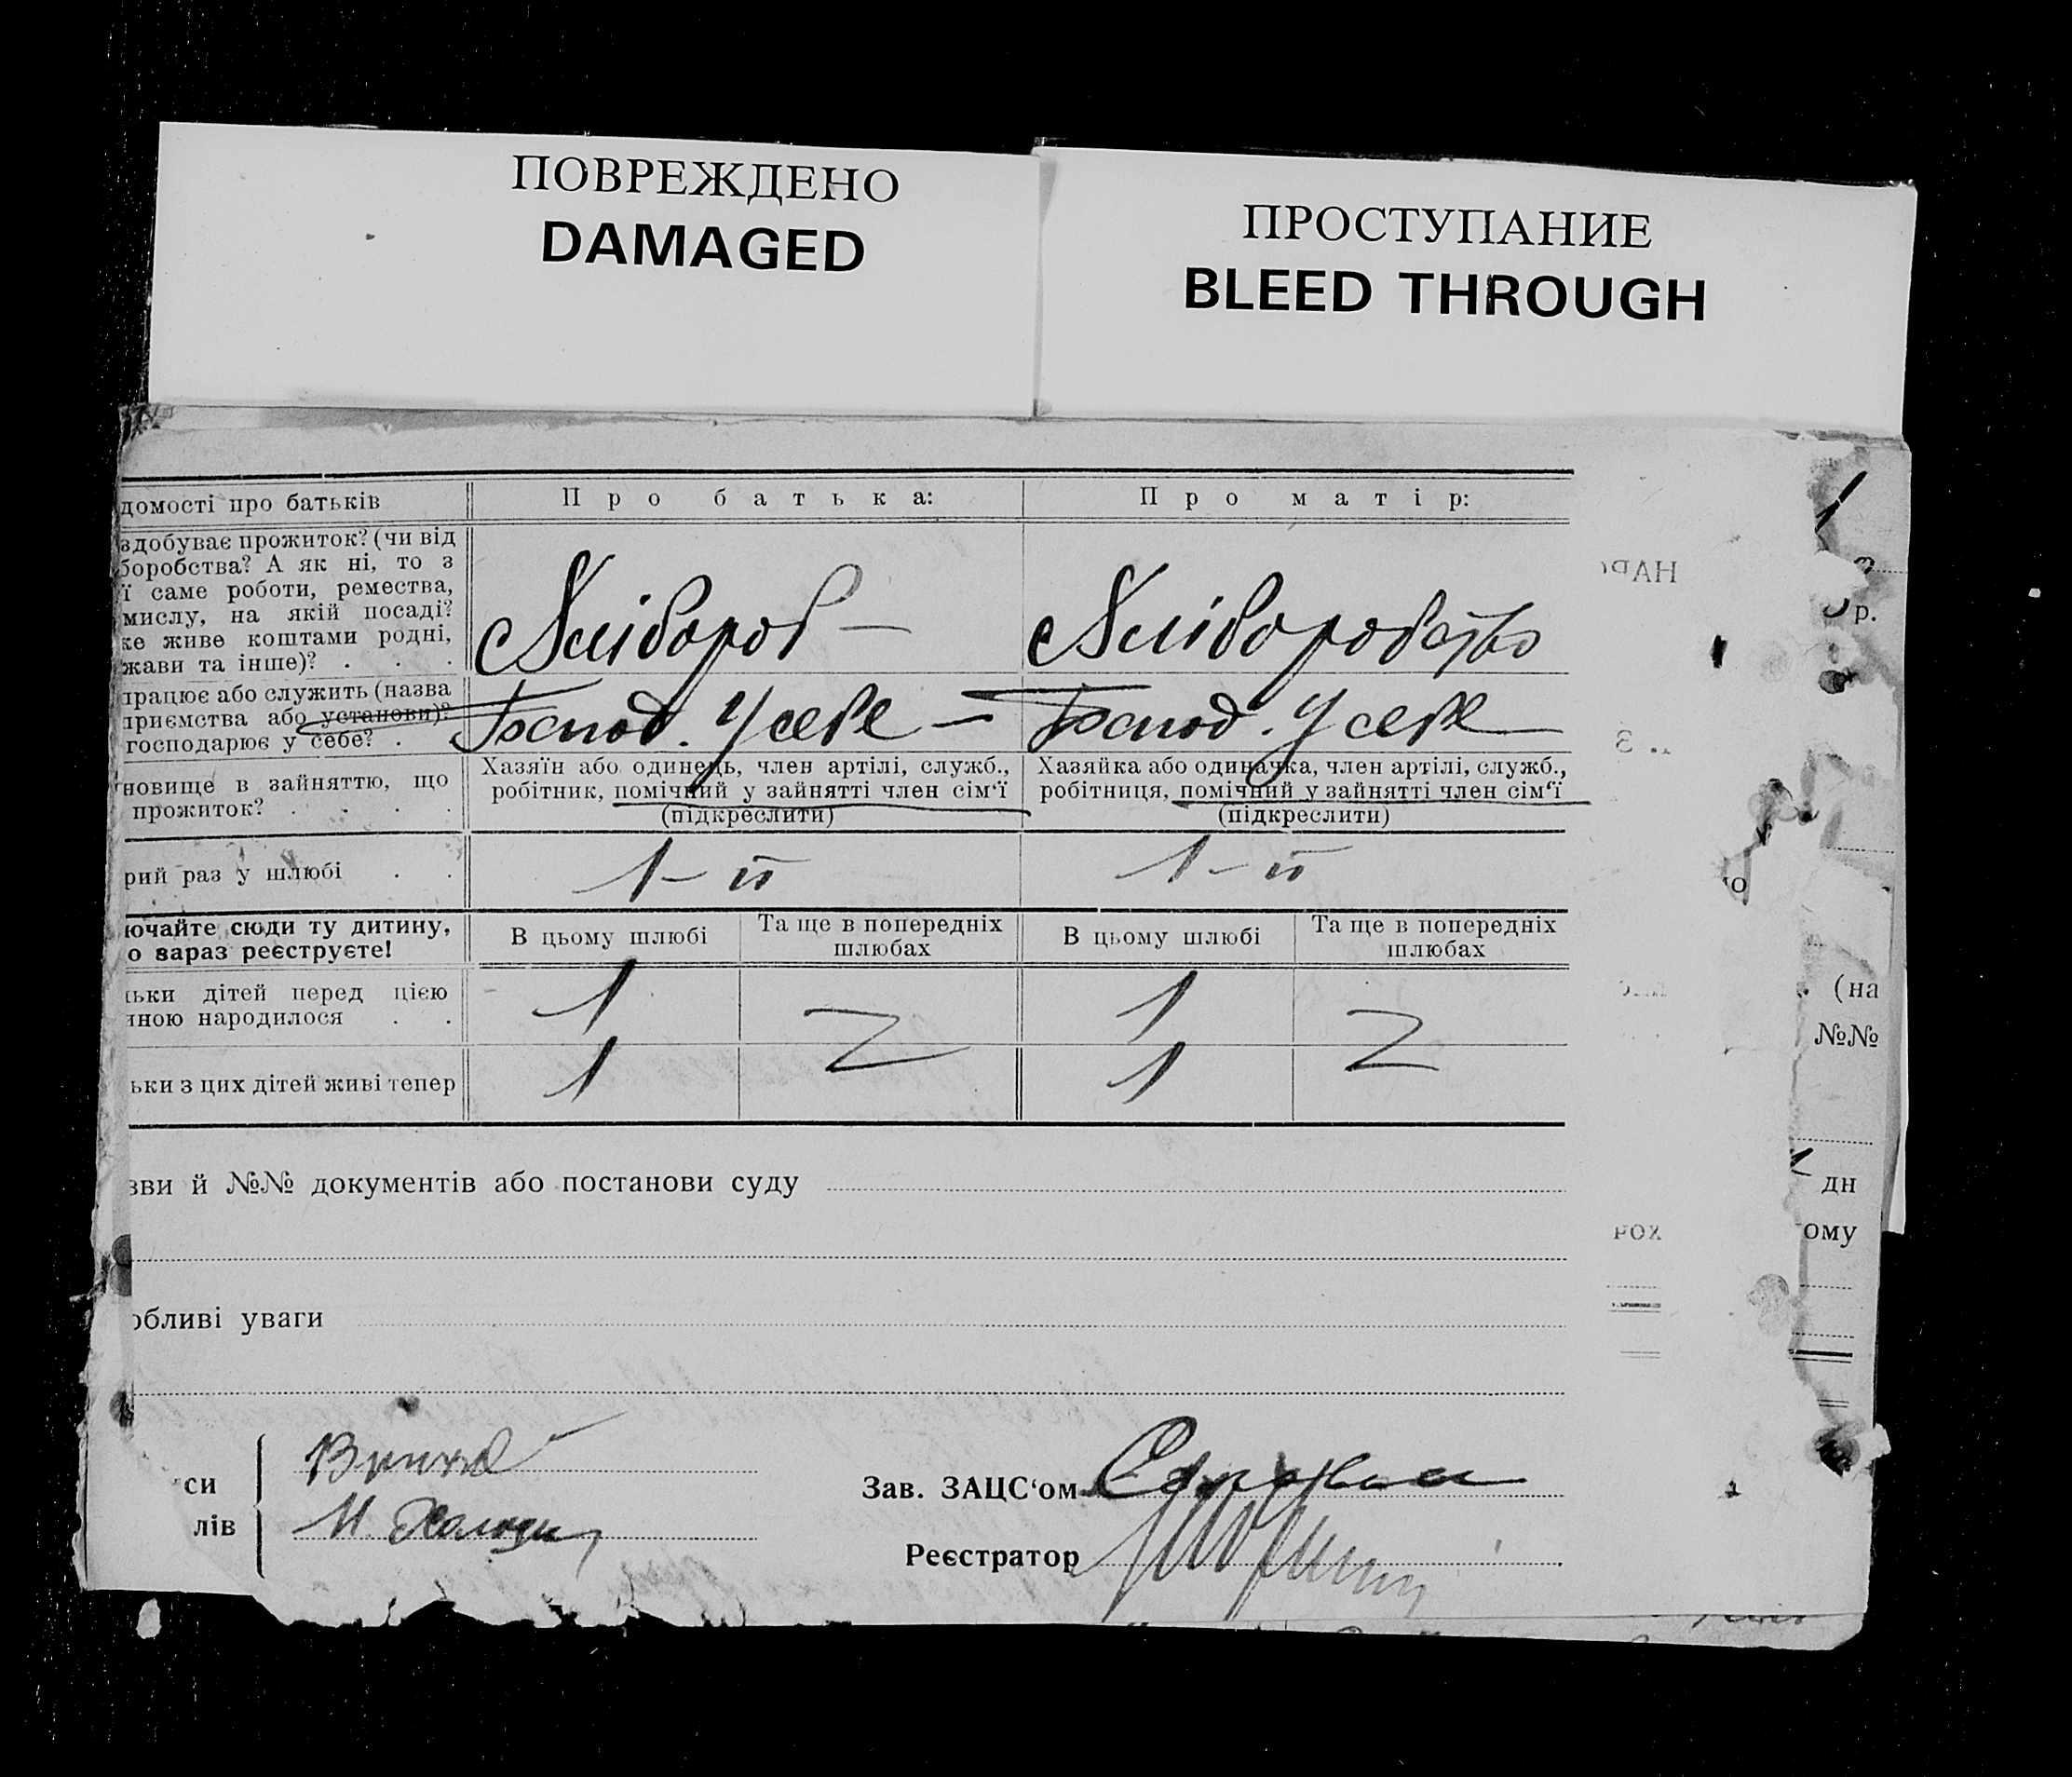 ПОВРЕЖДЕНО
DAMAGED
ПРОСТУПАНИЕ
BLEED THROUGH
домості про батьків
Про батька:
Про матір:
здобуває прожиток? (чи від
боробства? А як ні, то з
ї саме роботи, ремества,
мислу, на якій посаді?
же живе коштами родні,
жави та інше)? . . .
Хлібороб —
Хліборобство
працює або служить (назва
приємства або установи)?
господарює у себе? .
Господ. У себе —
Господ. У себе —
новище в зайняттю, що
прожиток? . . . .
Хазяїн або одинець, член артілі, служб.,
робітник, помічний у зайнятті член сім'ї
(підкреслити)
Хазяйка або одиначка, член артілі, служб.,
робітниця, помічний у зайнятті член сім'ї
(підкреслити)
рий раз у шлюбі . .
1-й
1-й
ючайте сюди ту дитину,
о зараз реєструєте!
В цьому шлюбі
Та ще в попередніх
шлюбах
В цьому шлюбі
Та ще в попередніх
шлюбах
ьки дітей перед цією
иною народилося . .
1
1
ьки з цих дітей живі тепер
1
1
зви й №№ документів або постанови суду
обливі уваги
си
лів
Зав. ЗАЦС'ом
Реєстратор
р.
(на
№№
дн
ому